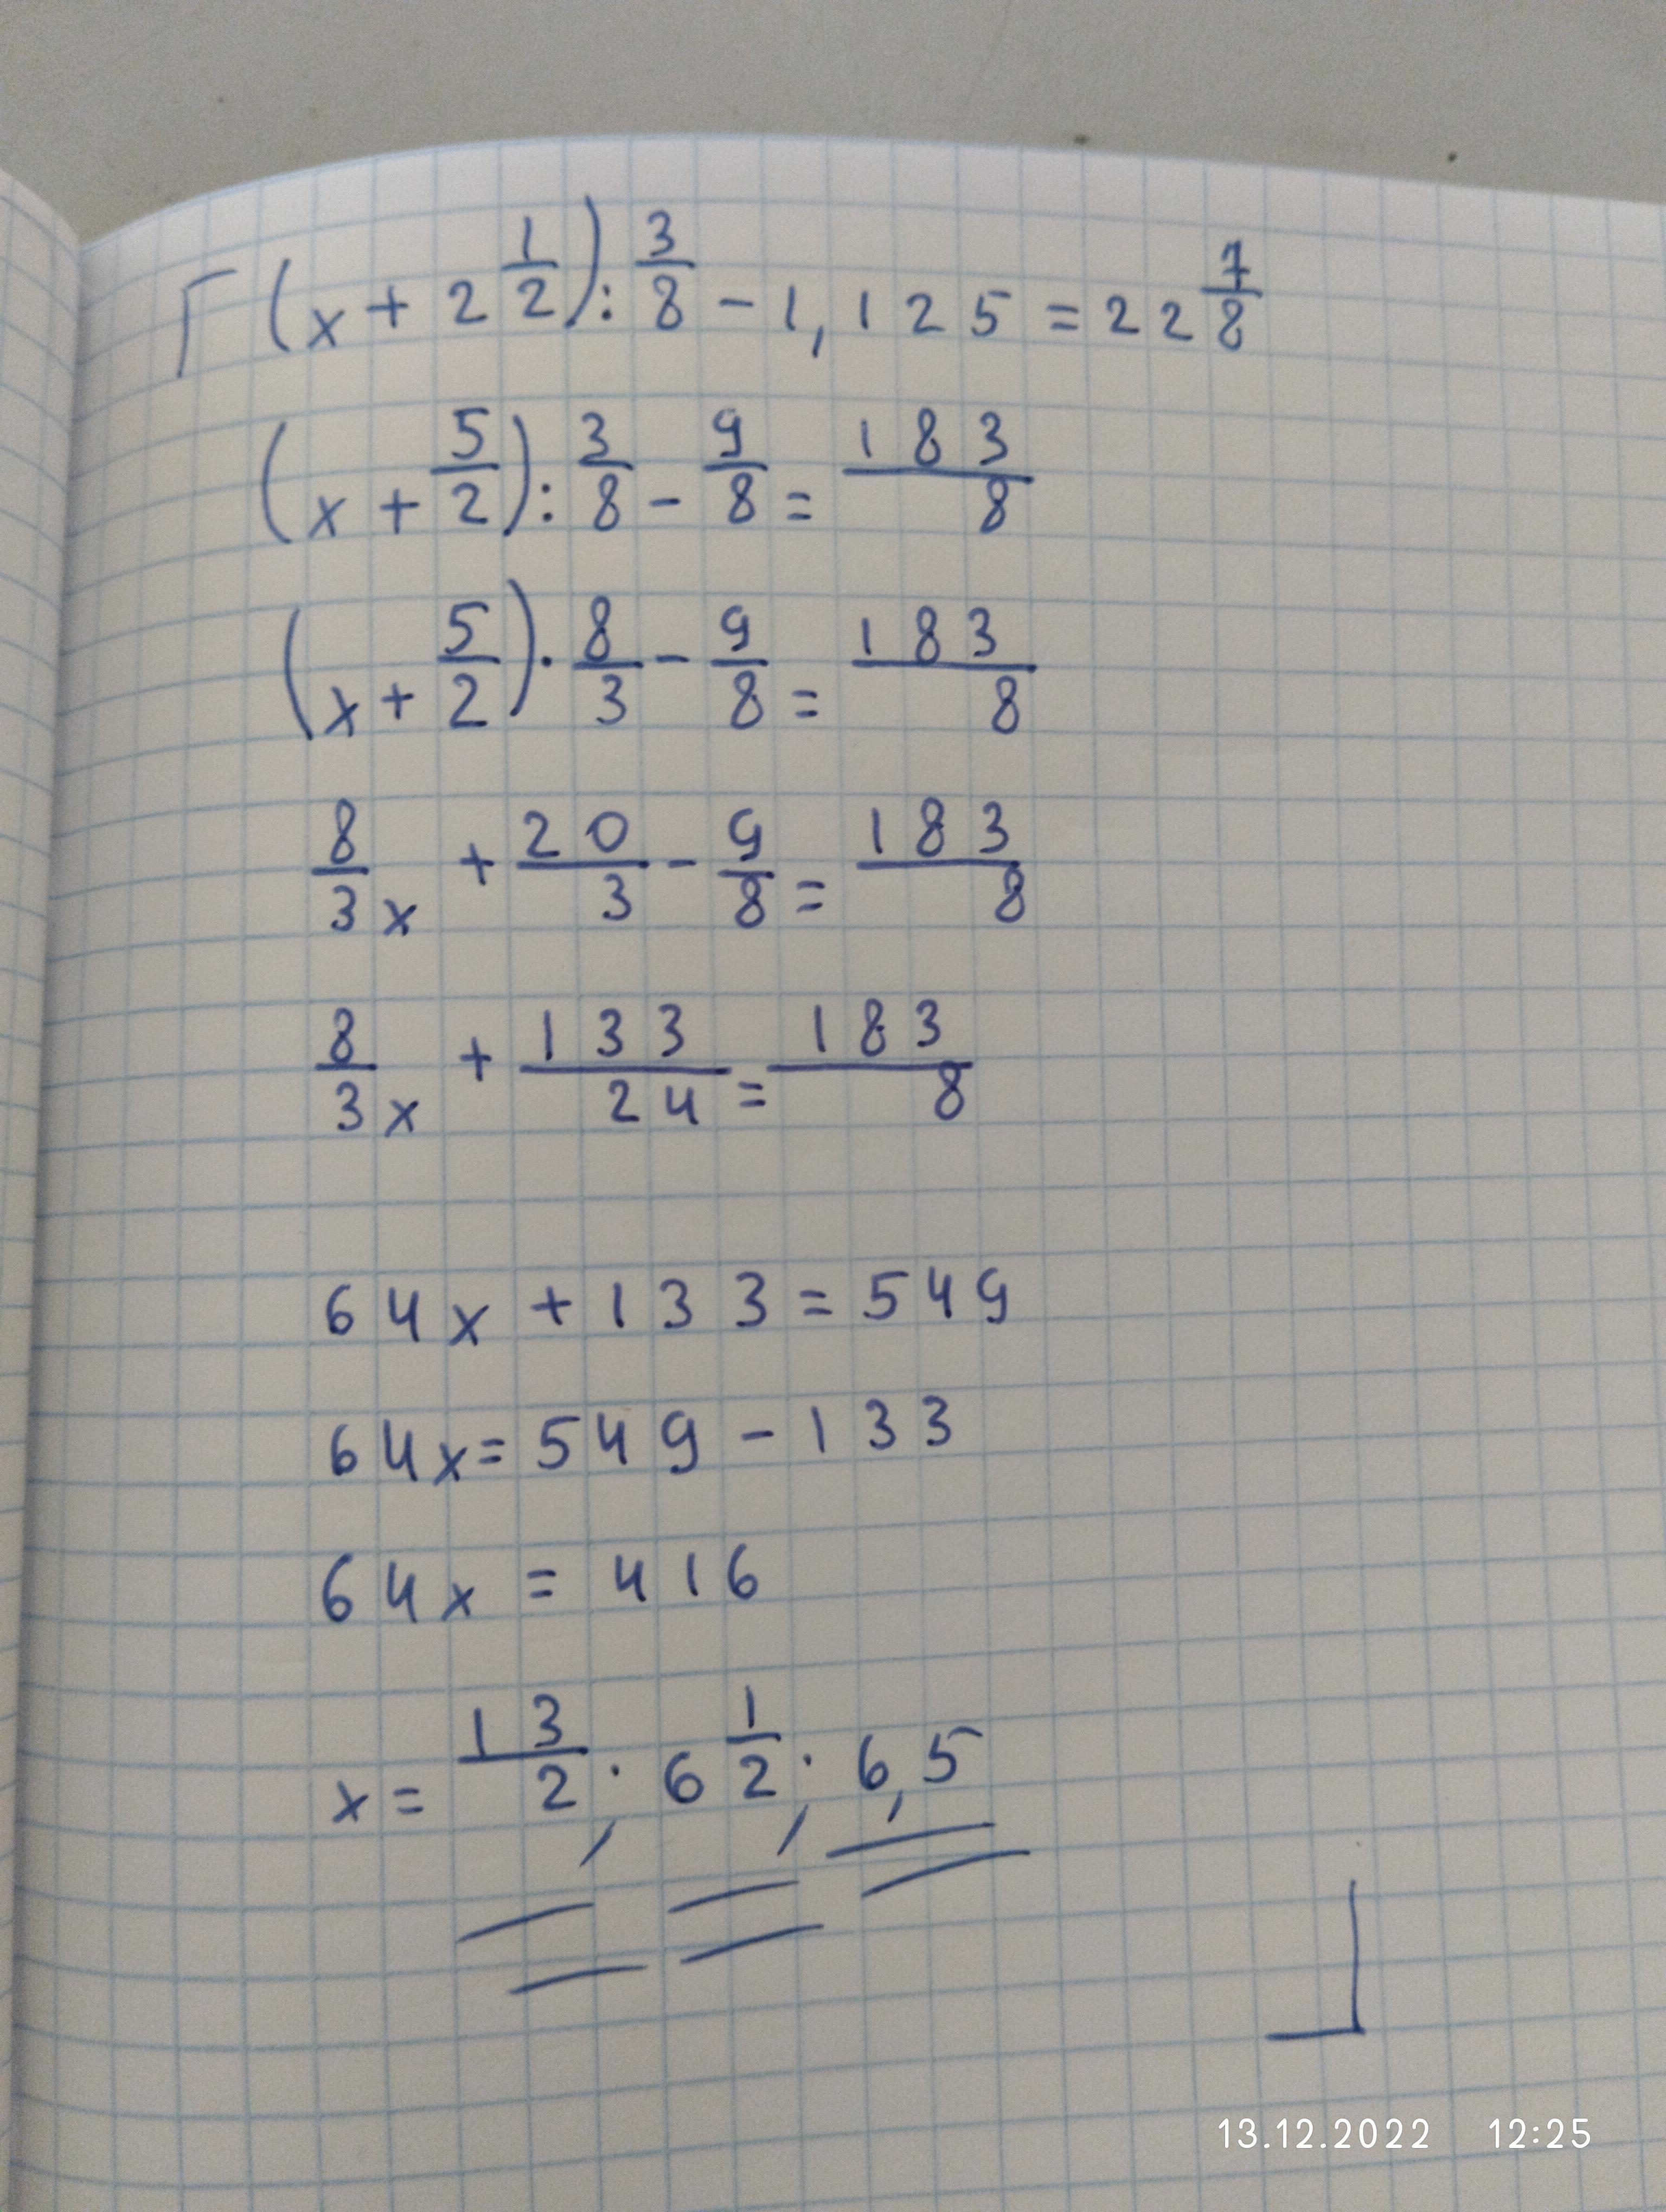 (x + 2 1/2) : 3/8 - 1,125 = 22 7/8
(x + 5/2) : 3/8 - 9/8 = 183/8
(x + 5/2) · 8/3 - 9/8 = 183/8
8/3 x + 20/3 - 9/8 = 183/8
8/3 x + 133/24 = 183/8
64x + 133 = 549
64x = 549 - 133
64x = 416
x = 13/2 ; 6 1/2 ; 6,5
13.12.2022 12:25